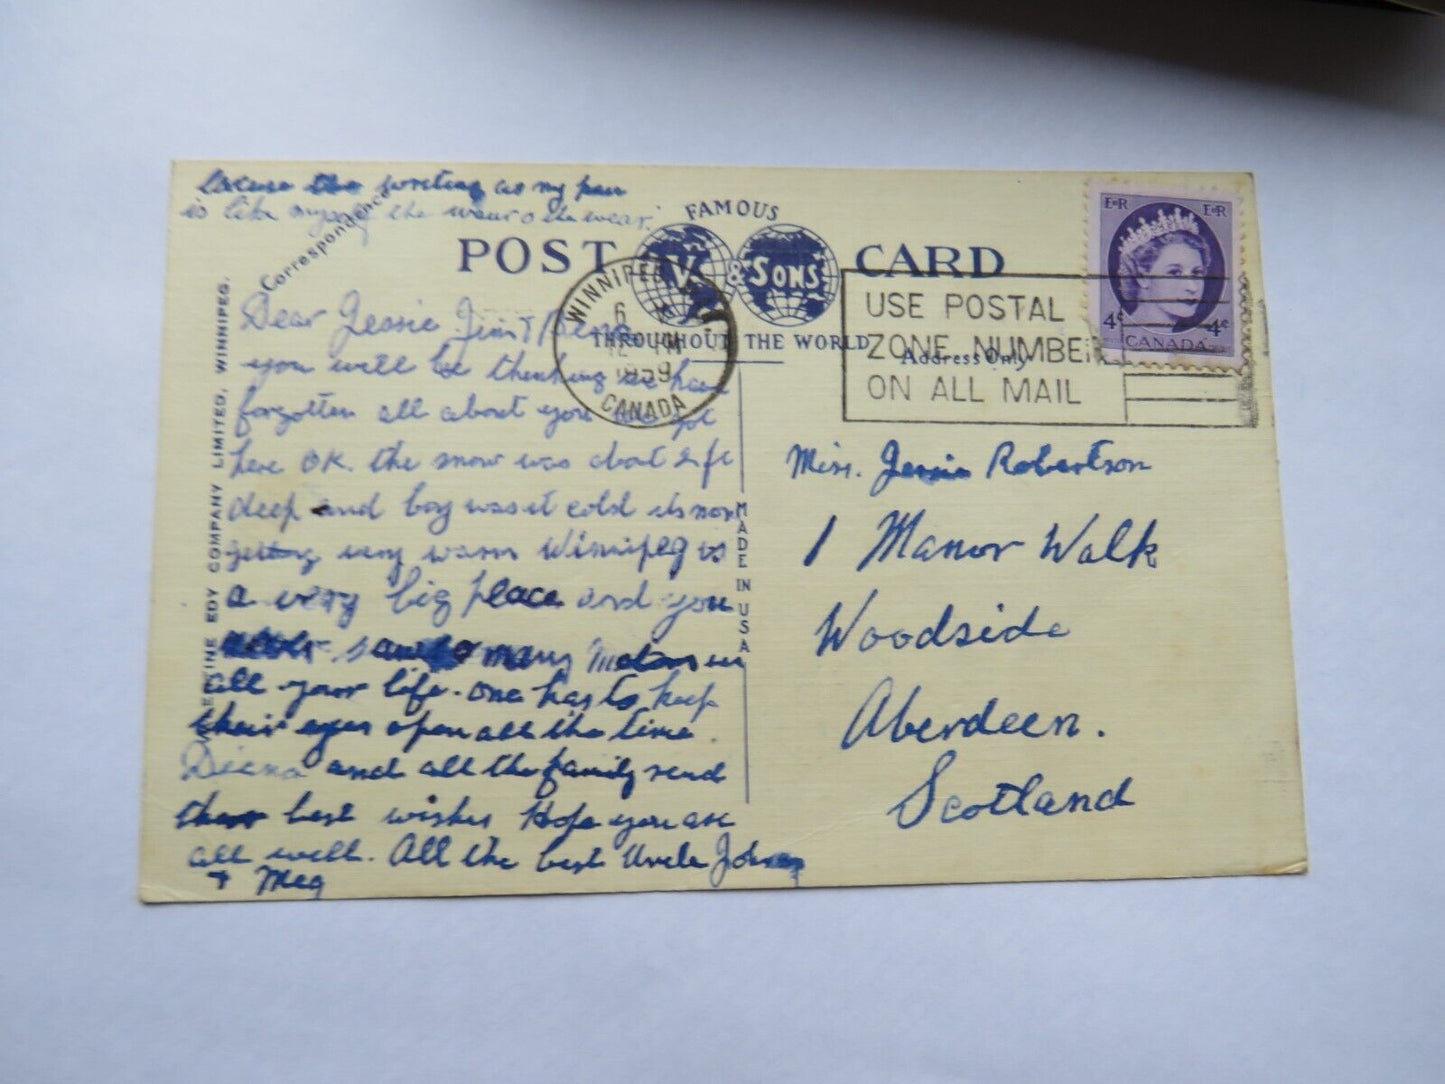 Excuse the writing as my pen
is like myself the waur o the wear.
Correspondence
FAMOUS
POST CARD
V. & SONS
THROUGHOUT THE WORLD
Address Only
WINNIPEG
6
PM
1959
CANADA
USE POSTAL
ZONE NUMBER
ON ALL MAIL
E R E R
4c 4c
CANADA
Dear Jessie Jim &
you will be thinking we have
forgotten all about you we got
here OK. the snow was about 2 ft
deep and boy was it cold its now
getting very warm Winnipeg is
a very big place and you
never saw so many motors in
all your life. one has to keep
their eyes open all the time.
Diana and all the family send
their best wishes Hope you are
all well. All the best Uncle
+ Meg
Miss. Jessie Robertson
1 Manor Walk
Woodside
Aberdeen.
Scotland
MADE IN USA
EDY COMPANY LIMITED, WINNIPEG.